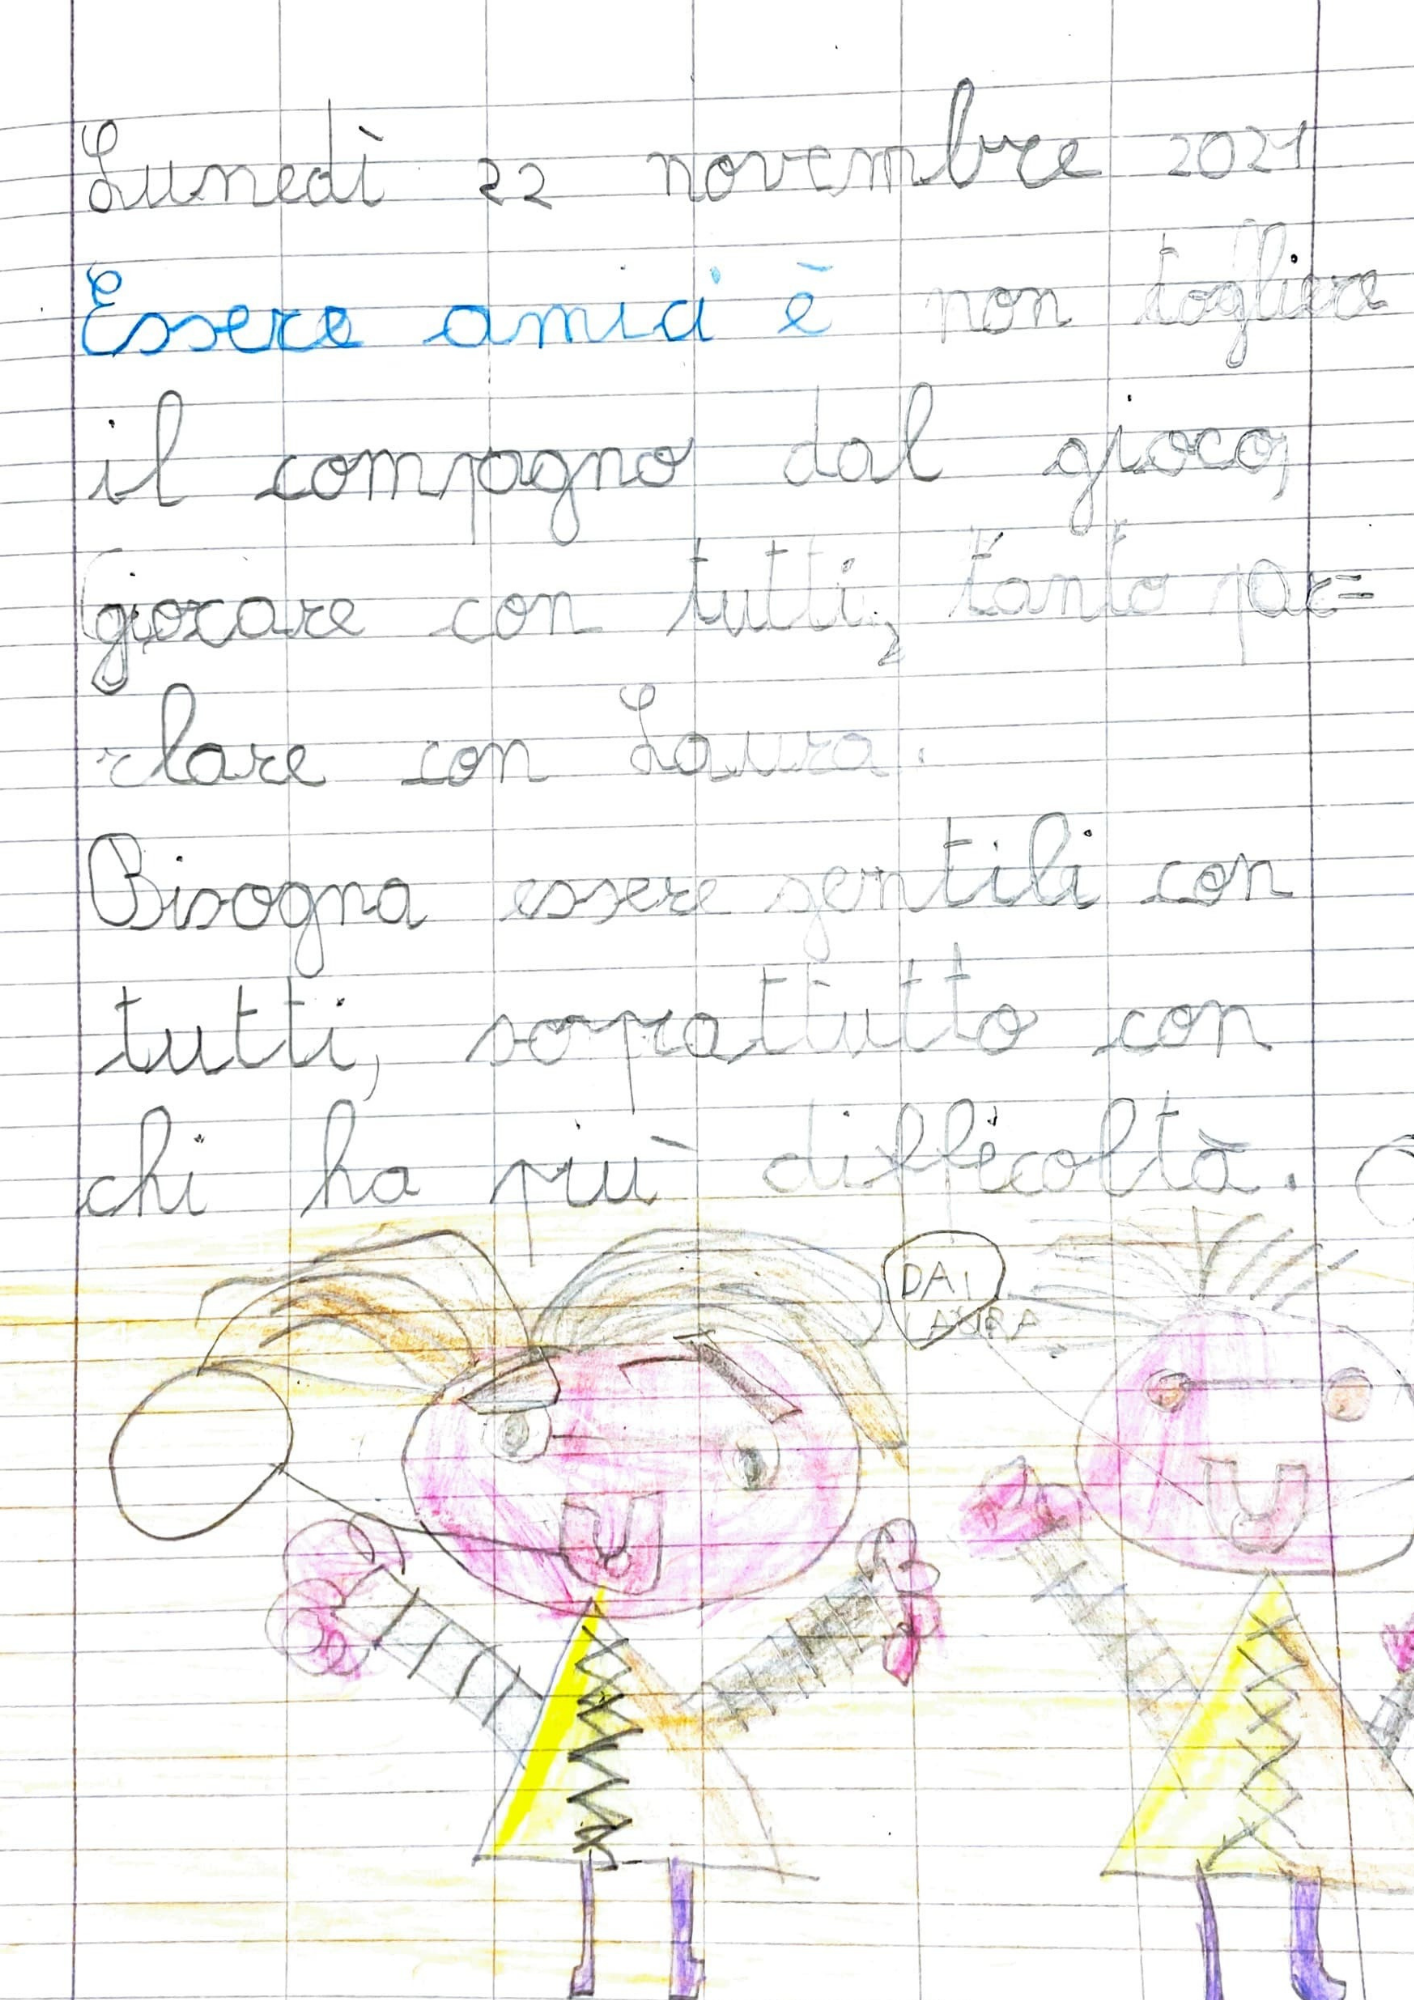 Lunedì 22 novembre 2021
Essere amici è non togliere
il compagno dal gioco,
giocare con tutti, tanto par=
rlare con Laura.
Bisogna essere gentili con
tutti, soprattutto con
chi ha più difficoltà.
DAI
LAURA